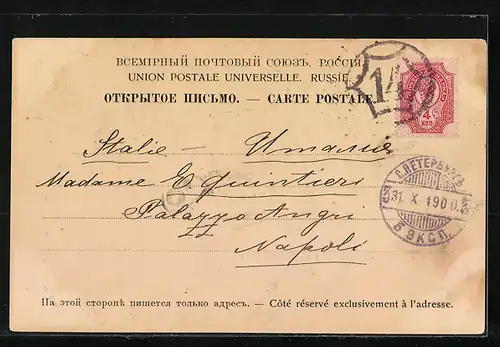 ВСЕМІРНЫЙ ПОЧТОВЫЙ СОЮЗЪ. РОССІЯ.
UNION POSTALE UNIVERSELLE. RUSSIE.
ОТКРЫТОЕ ПИСЬМО. — CARTE POSTALE.
14
4
КОП
Italie — Италія
Madame E Quintieri
Palazzo Angri
Napoli
С.ПЕТЕРБУРГЪ
31. X 1900.
5 ЭКСП.
На этой сторонѣ пишется только адресъ. — Côté réservé exclusivement à l'adresse.